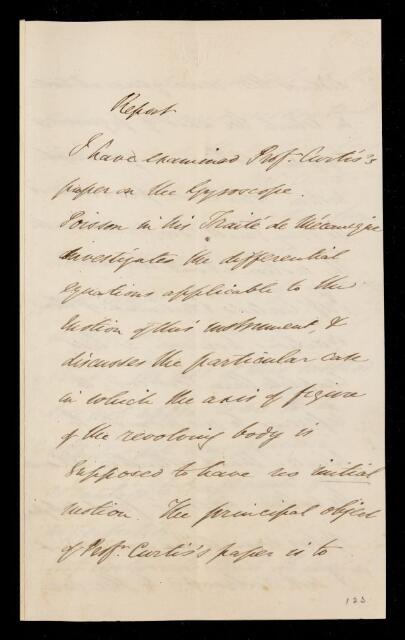 Report
I have examined Prof. Curtis's
paper on the Gyroscope.
Poisson in his Traité de Mécanique
investigates the differential
equations applicable to the
motion of this instrument, &
discusses the particular case
in which the axis of figure
of the revolving body is
supposed to have no initial
motion. The principal object
of Profr. Curtis's paper is to
123